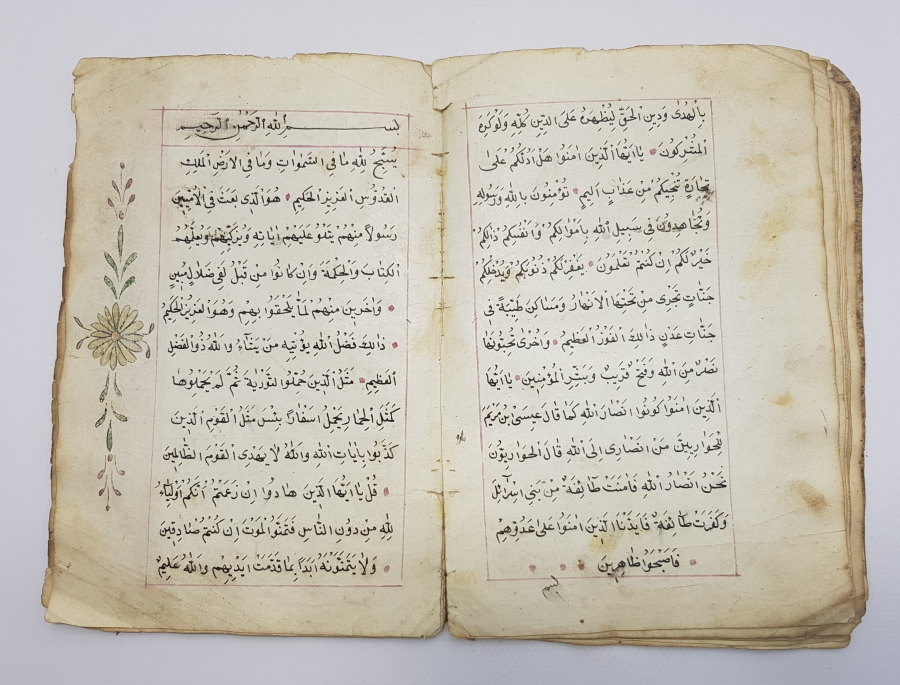 بِالْهُدٰى وَدِينِ الْحَقِّ لِيُظْهِرَهُ عَلَى الدِّينِ كُلِّهِ وَلَوْكَرِهَ
الْمُشْرِكُونَ يَٓااَيُّهَا الَّذِينَ اٰمَنُوا هَلْ اَدُلُّكُمْ عَلٰى
تِجَارَةٍ تُنْجِيكُمْ مِنْ عَذَابٍ اَلِيمٍ تُؤْمِنُونَ بِاللّٰهِ وَرَسُولِهِ
وَتُجَاهِدُونَ فِى سَبِيلِ اللّٰهِ بِاَمْوَالِكُمْ وَاَنْفُسِكُمْ ذٰلِكُمْ
خَيْرٌ لَكُمْ اِنْ كُنْتُمْ تَعْلَمُونَ يَغْفِرْلَكُمْ ذُنُوبَكُمْ وَيُدْخِلْكُمْ
جَنَّاتٍ تَجْرِى مِنْ تَحْتِهَا الْاَنْهَارُ وَمَسَاكِنَ طَيِّبَةً فِى
جَنَّاتِ عَدْنٍ ذٰلِكَ الْفَوْزُ الْعَظِيمُ وَاُخْرٰى تُحِبُّونَهَا
نَصْرٌ مِنَ اللّٰهِ وَفَتْحٌ قَرِيبٌ وَبَشِّرِ الْمُؤْمِنِينَ يَٓااَيُّهَا
الَّذِينَ اٰمَنُوا كُونُوا اَنْصَارَ اللّٰهِ كَمَا قَالَ عِيسَى ابْنُ مَرْيَمَ
لِلْحَوَارِيِّينَ مَنْ اَنْصَارِى اِلَى اللّٰهِ قَالَ الْحَوَارِيُّونَ
نَحْنُ اَنْصَارُ اللّٰهِ فَاٰمَنَتْ طَائِفَةٌ مِنْ بَنِى اِسْرَائِلَ
وَكَفَرَتْ طَائِفَةٌ فَاَيَّدْنَا الَّذِينَ اٰمَنُوا عَلٰى عَدُوِّهِمْ
فَاَصْبَحُوا ظَاهِرِينَ
بســـم اللّٰهِ الرَّحْمٰنِ الرَّحِيمِ
يُسَبِّحُ لِلّٰهِ مَا فِى السَّمٰوَاتِ وَمَا فِى الْاَرْضِ الْمَلِكِ
الْقُدُّوسِ الْعَزِيزِ الْحَكِيمِ هُوَ الَّذِى بَعَثَ فِى الْاُمِّيِّنَ
رَسُولًا مِنْهُمْ يَتْلُو عَلَيْهِمْ اٰيَاتِهِ وَيُزَكِّيهِمْ وَيُعَلِّمُهُمُ
الْكِتَابَ وَالْحِكْمَةَ وَاِنْ كَانُوا مِنْ قَبْلُ لَفِى ضَلَالٍ مُبِينٍ
وَاٰخَرِينَ مِنْهُمْ لَمَّا يَلْحَقُوا بِهِمْ وَهُوَ الْعَزِيزُ الْحَكِيمُ
ذٰلِكَ فَضْلُ اللّٰهِ يُؤْتِيهِ مَنْ يَشَٓاءُ وَاللّٰهُ ذُو الْفَضْلِ
الْعَظِيمِ مَثَلُ الَّذِينَ حُمِّلُوا التَّوْرٰيةَ ثُمَّ لَمْ يَحْمِلُوهَا
كَمَثَلِ الْحِمَارِ يَحْمِلُ اَسْفَارًا بِئْسَ مَثَلُ الْقَوْمِ الَّذِينَ
كَذَّبُوا بِاٰيَاتِ اللّٰهِ وَاللّٰهُ لَا يَهْدِى الْقَوْمَ الظَّالِمِينَ
قُلْ يَٓااَيُّهَا الَّذِينَ هَادُوا اِنْ زَعَمْتُمْ اَنَّكُمْ اَوْلِيَٓاءُ
لِلّٰهِ مِنْ دُونِ النَّاسِ فَتَمَنَّوُا الْمَوْتَ اِنْ كُنْتُمْ صَادِقِينَ
وَلَا يَتَمَنَّوْنَهُ اَبَدًا بِمَا قَدَّمَتْ اَيْدِيهِمْ وَاللّٰهُ عَلِيمٌ